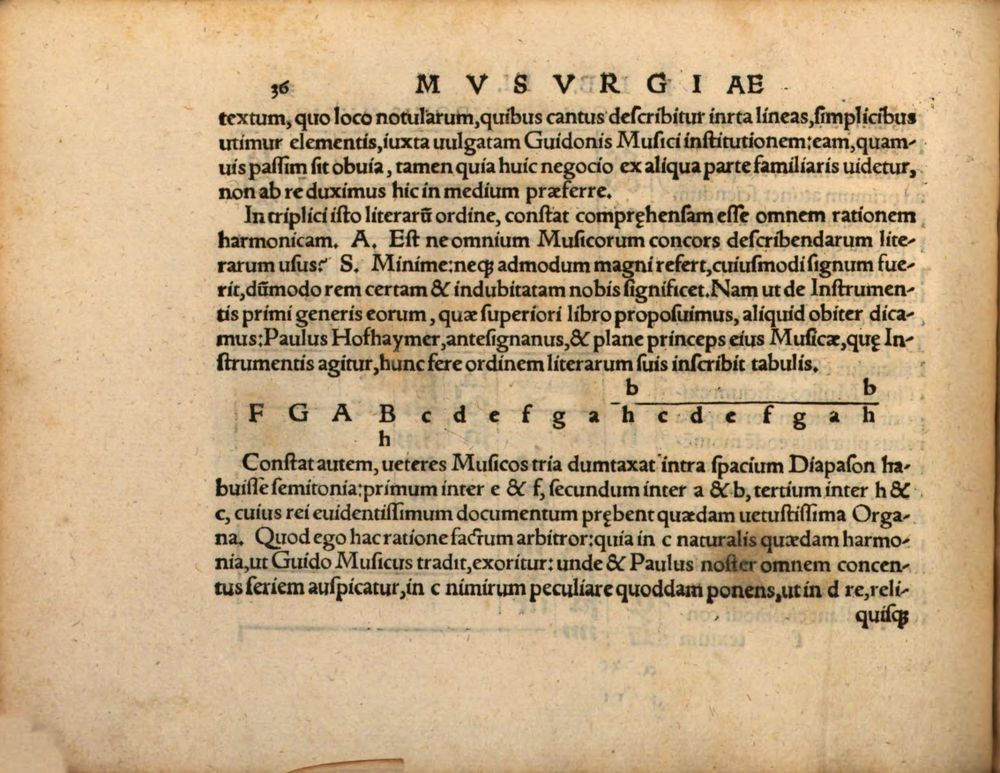 36 MVSVRGIAE
textum, quo loco notularum, quibus cantus describitur inrta lineas, simplicibus
utimur elementis, iuxta uulgatam Guidonis Musici institutionem: eam, quam-
uis passim sit obuia, tamen quia huic negocio ex aliqua parte familiaris uidetur,
non ab re duximus hic in medium præferre.
In triplici isto literarũ ordine, constat compręhensam esse omnem rationem
harmonicam. A. Est ne omnium Musicorum concors describendarum lite-
rarum usus? S. Minime: neqꝫ admodum magni refert, cuiusmodi signum fue-
rit, dũmodo rem certam & indubitatam nobis significet. Nam ut de Instrumen-
tis primi generis eorum, quæ superiori libro proposuimus, aliquid obiter dica-
mus: Paulus Hofhaymer, antesignanus, & plane princeps eius Musicæ, quę In-
strumentis agitur, hunc fere ordinem literarum suis inscribit tabulis.
b b
F G A B c d e f g a h c d e f g a h
h
Constat autem, ueteres Musicos tria dumtaxat intra spacium Diapason ha-
buisse semitonia: primum inter e & f, secundum inter a & b, tertium inter h &
c, cuius rei euidentissimum documentum prębent quædam uetustissima Orga-
na. Quod ego hac ratione factum arbitror: quia in c naturalis quædam harmo-
nia, ut Guido Musicus tradit, exoritur: unde & Paulus noster omnem concen-
tus seriem auspicatur, in c nimirum peculiare quoddam ponens, ut in d re, reli-
quisqꝫ